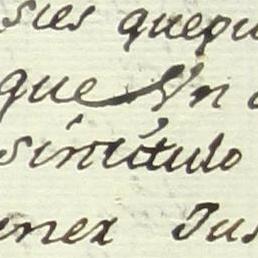 sies quepu
que Un
sintitulo
enex Jus